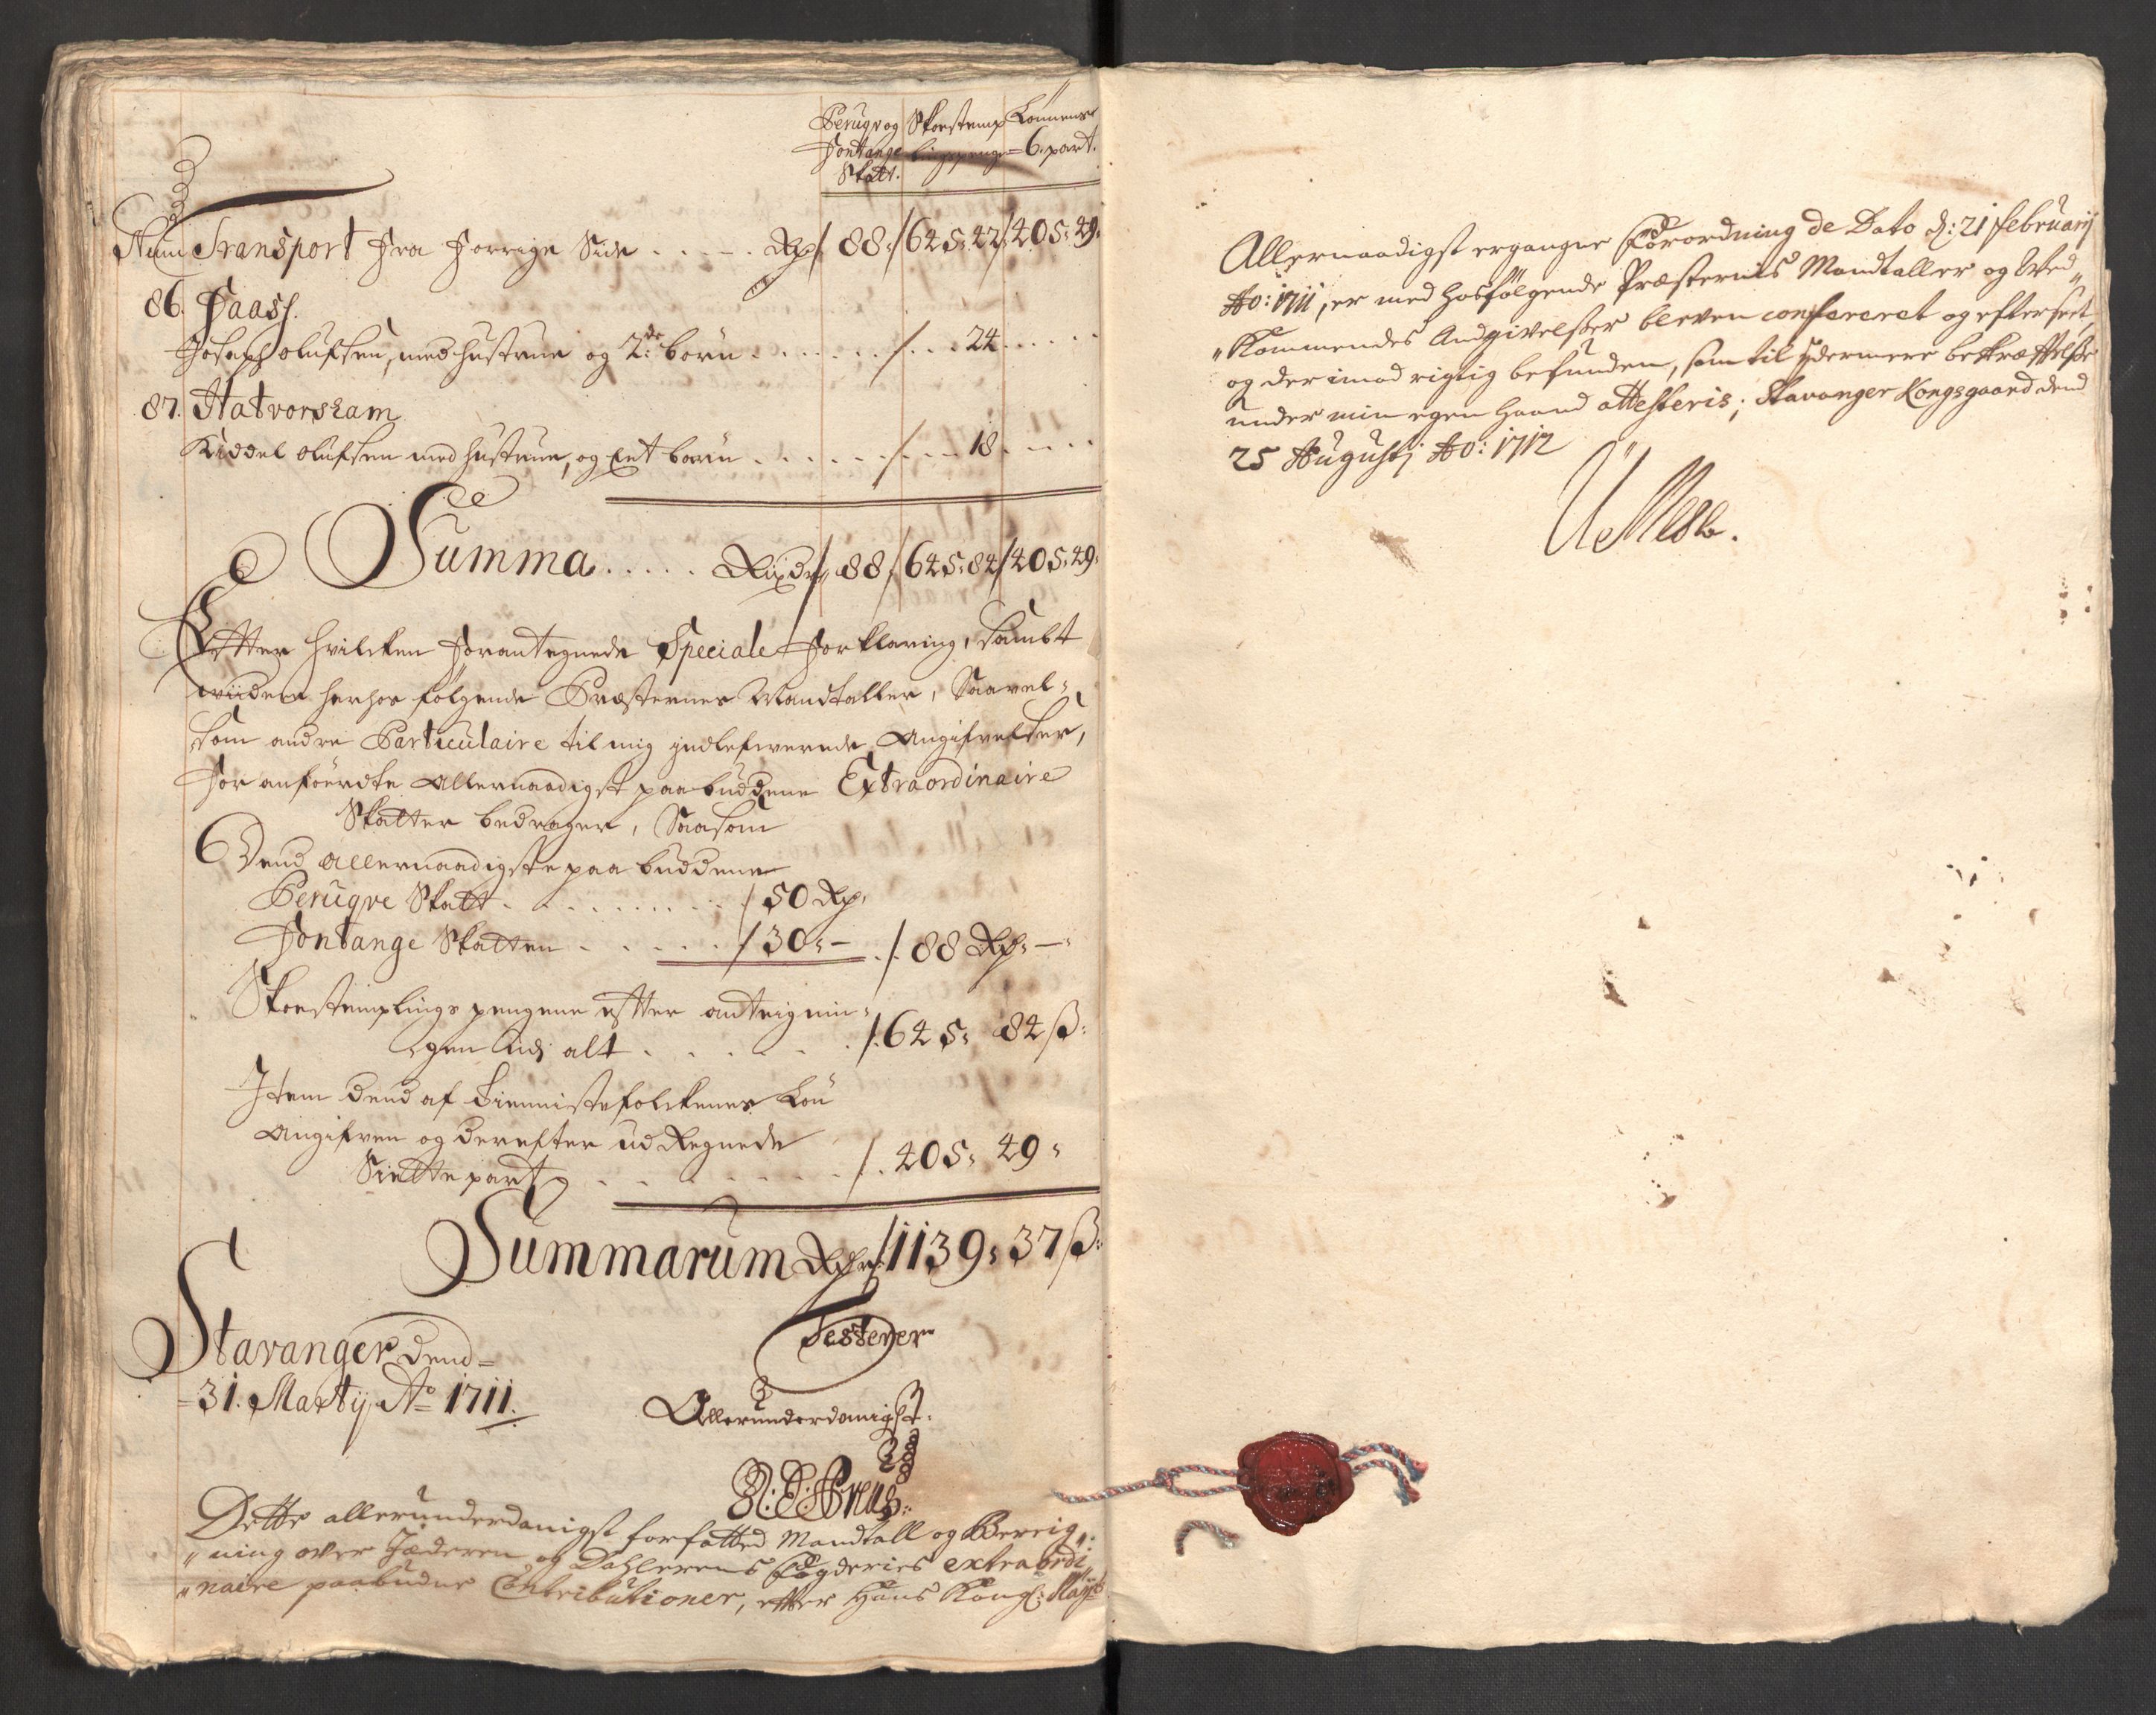 Perugv og Skorstemp Lønnens
Fontange lingspenge 6. part.
Skatt.
Num Transport fra forrige Side . . . . . Rdr 88: 645: 42 405: 49:
86. Paasf.
Joseph olufsen, med hustrue og 2de børn . . . . . . . . . 24 . . . .
87. Hatvorsham
Kiddel olufsen med hustrue, og Eet barn . . . . . . . . . 18 . . . .
Summa . . . . . Rixdr 88 645: 84 405: 49:
Effter hvilcken forantegnede Speciale forklaring, sambt
viidere herhos følgende Præsternes Mandtaller, Saavel-
som andre Particulaire til mig indlefverede Angifvelser,
for anførdte Allernaadigst paabuddene Extraordinaire
Skatter bedrager, Saasom
Dend allernaadigste paabuddene
Perugve Skatt . . . . . . . . . 50 Rdr.
Fontange Skatten . . . . . . 30: — . 88 Rdr: —
Skoestemplings pengene effter andteignin-
gen udi alt . . . . . . . 645: 84 ß:
Item Dend af Tienniste folckenes Løn
Angifven og derefter ud Regnede
Siette part . . . . . . . . 405: 49:
Summarum Rdr 1139: 37 ß:
Stavanger Dend
31. Martij Ao 1711.
Testerer
Allerunderdanigst.
Dette allerunderdanigst forfatted Mandtall og Bereig„
„ning over Jæderen og Dahlerens Fogderies extraordi„
„naire paabudne Contributioner, efter Hans Kongl: Mayts
Allernaadigst ergangne Forordning de Dato d: 21 februarij
Ao: 1711, er med hosfølgende Præsternis Mandtaller og Ved„
„Kommendes Andgivelsser bleven confereret og efterseet,
og der imod rigtig befunden, som til ydermere bekræfftelsse
under min egen Haand attesteris; Stavanger Kongsgaard dend
25 Augustj Ao: 1712